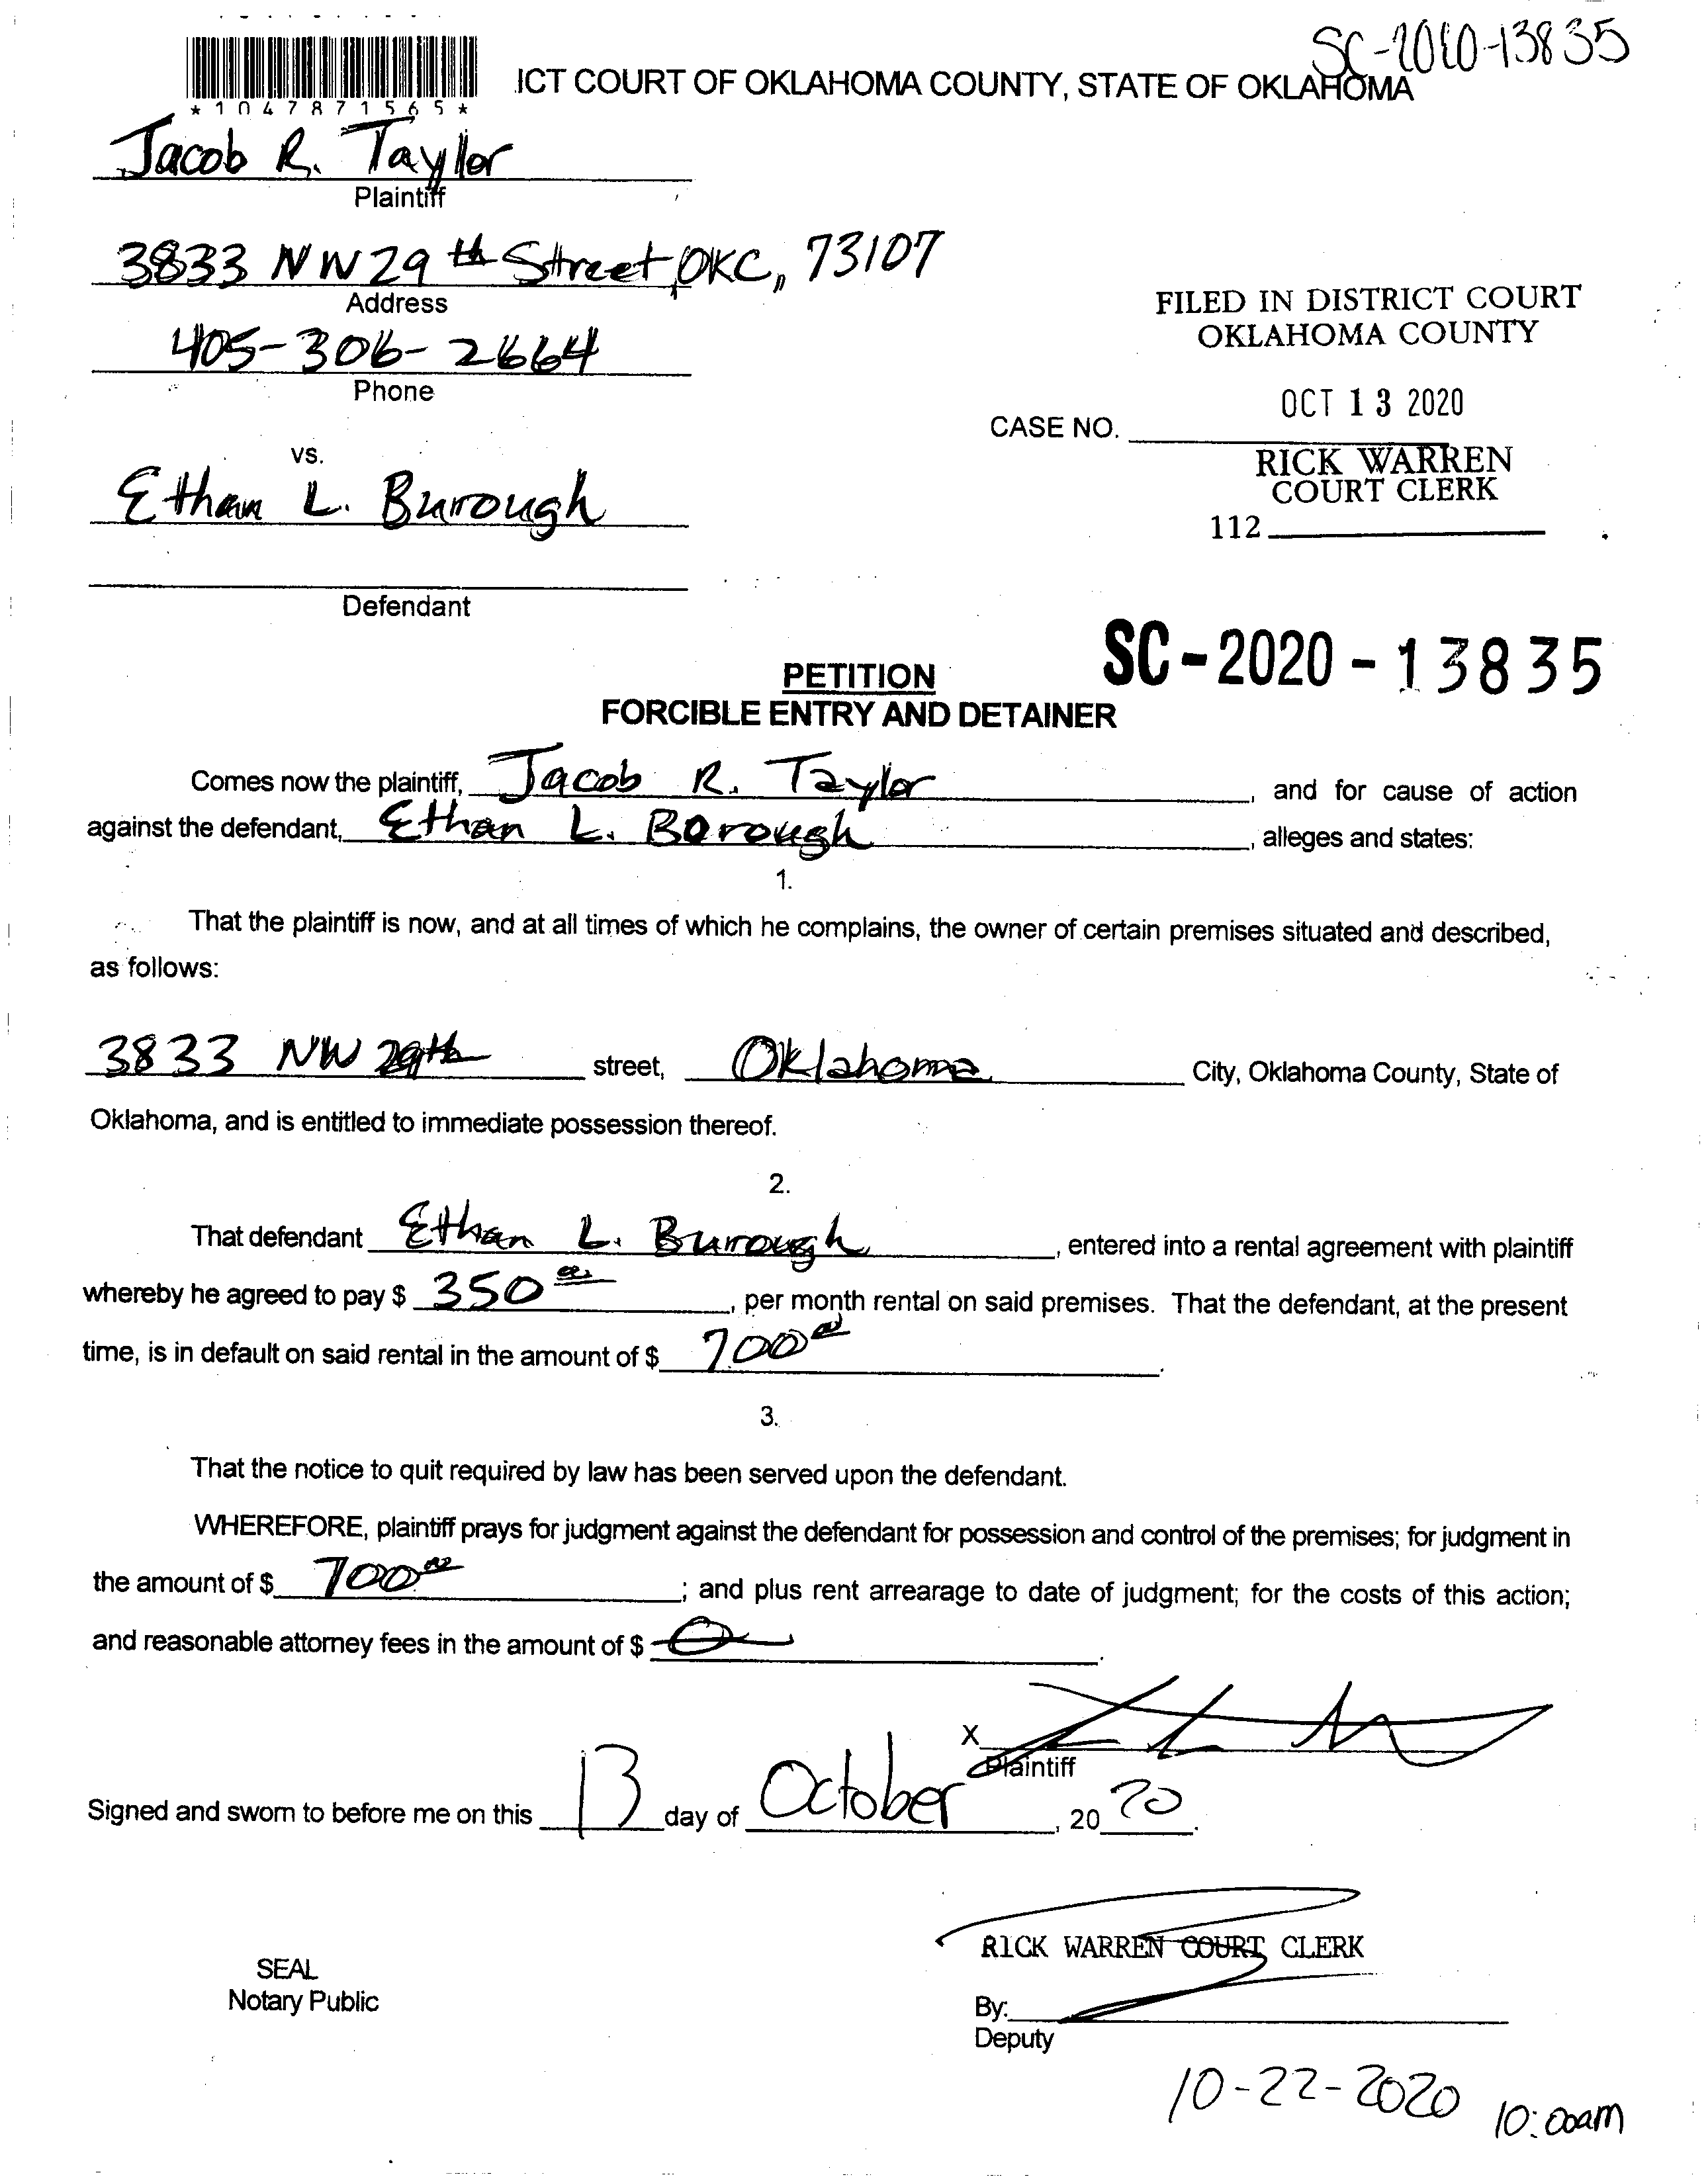 SC-2020-13835
ICT COURT OF OKLAHOMA COUNTY, STATE OF OKLAHOMA
*1047871565*
Jacob R. Taylor
Plaintiff
3833 NW 29th Street, OKC, 73107
Address
405-306-2664
Phone
FILED IN DISTRICT COURT
OKLAHOMA COUNTY
OCT 13 2020
CASE NO.
RICK WARREN
COURT CLERK
112
vs.
Ethan L. Burough
Defendant
SC-2020-13835
PETITION
FORCIBLE ENTRY AND DETAINER
Comes now the plaintiff, Jacob R. Taylor, and for cause of action
against the defendant, Ethan L. Borough, alleges and states:
1.
That the plaintiff is now, and at all times of which he complains, the owner of certain premises situated and described,
as follows:
3833 NW 29th street, Oklahoma City, Oklahoma County, State of
Oklahoma, and is entitled to immediate possession thereof.
2.
That defendant Ethan L. Burough, entered into a rental agreement with plaintiff
whereby he agreed to pay $ 350 00, per month rental on said premises. That the defendant, at the present
time, is in default on said rental in the amount of $ 700 00.
3.
That the notice to quit required by law has been served upon the defendant.
WHEREFORE, plaintiff prays for judgment against the defendant for possession and control of the premises; for judgment in
the amount of $ 700 00; and plus rent arrearage to date of judgment; for the costs of this action;
and reasonable attorney fees in the amount of $ 0.
X
Plaintiff
Signed and sworn to before me on this 13 day of October, 2020.
RICK WARREN COURT CLERK
SEAL
Notary Public
By:
Deputy
10-22-2020 10:00am